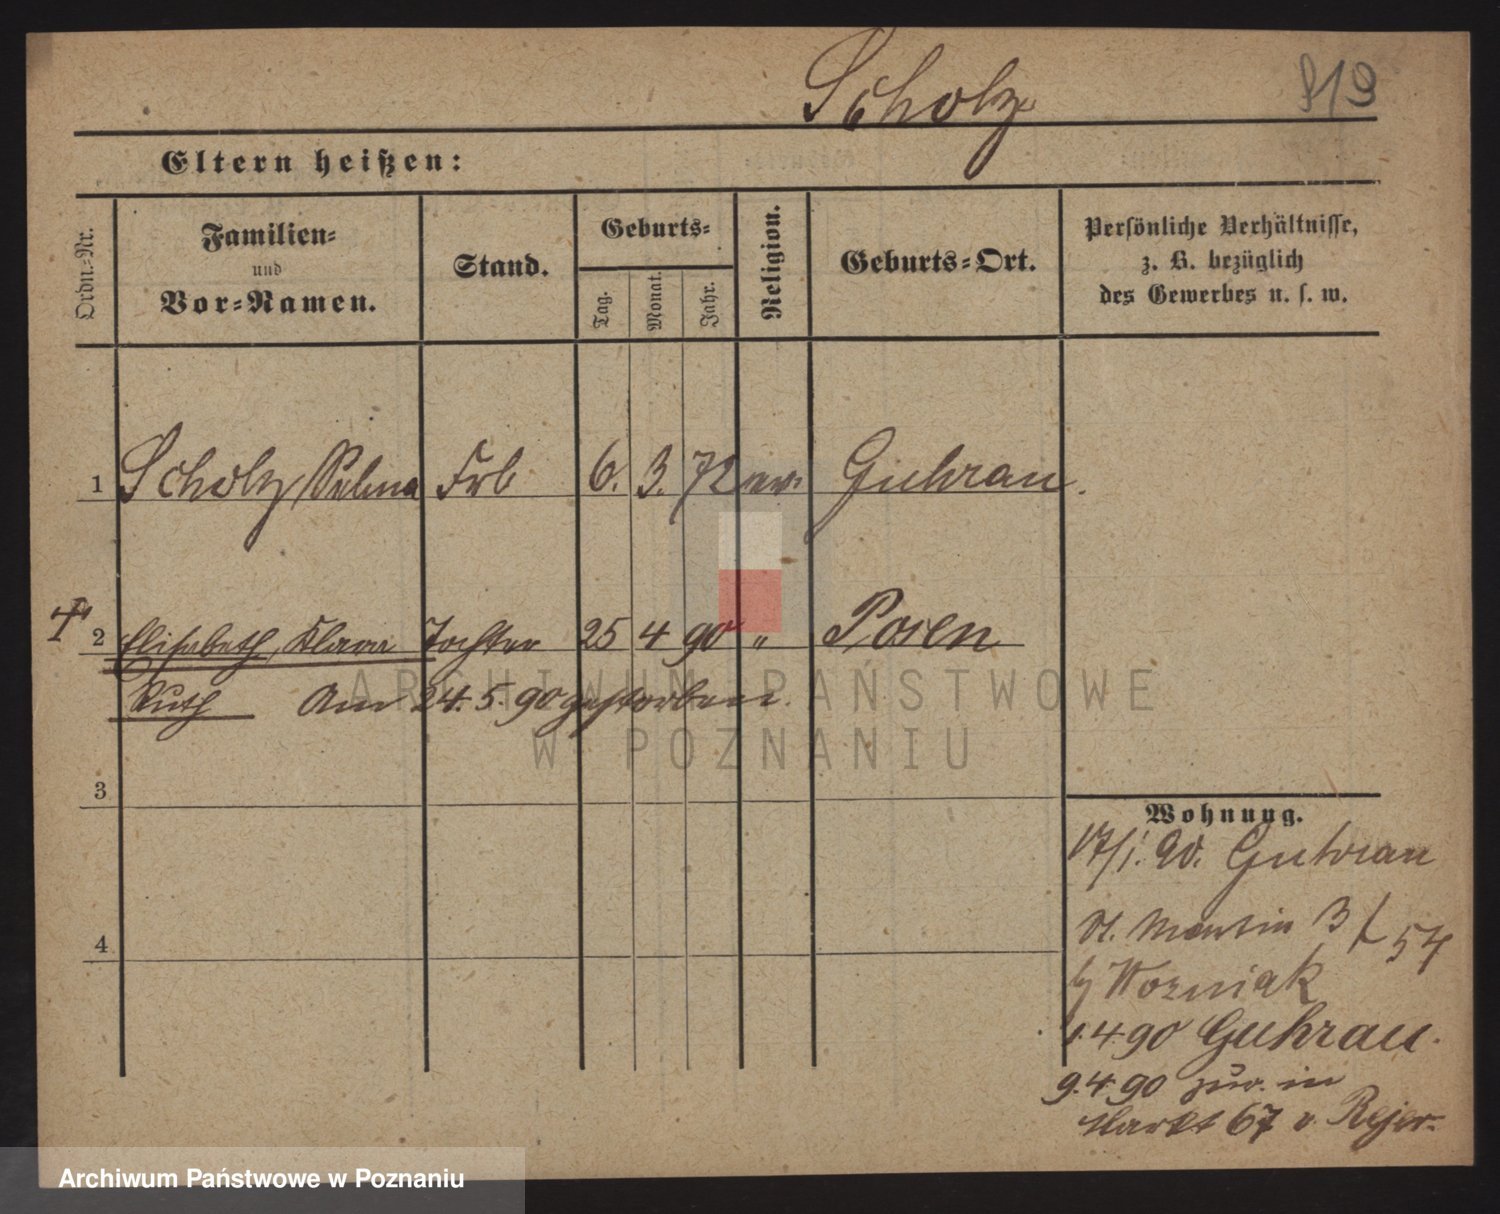 Scholz 919
Eltern heißen:
Ordn.-Nr.
Familien-
und
Vor-Namen.
Stand.
Geburts-
Tag.
Monat.
Jahr.
Religion.
Geburts-Ort.
Persönliche Verhältnisse,
z. B. bezüglich
des Gewerbes u. s. w.
1 Scholz, Selma Frb 6. 3. 72 ev. Guhrau.
2 Elisabeth, Klara Tochter 25 4 90 " Posen
Ruth Am 24. 5. 90 gestorben.
ARCHIWUM PAŃSTWOWE
W POZNANIU
3
4
Wohnung.
17/1. 90. Guhrau
St. Martin 3 54
Wozniak
1. 4 90 Guhrau.
9. 4. 90 zur. in
Markt 67 Rejer
Archiwum Państwowe w Poznaniu